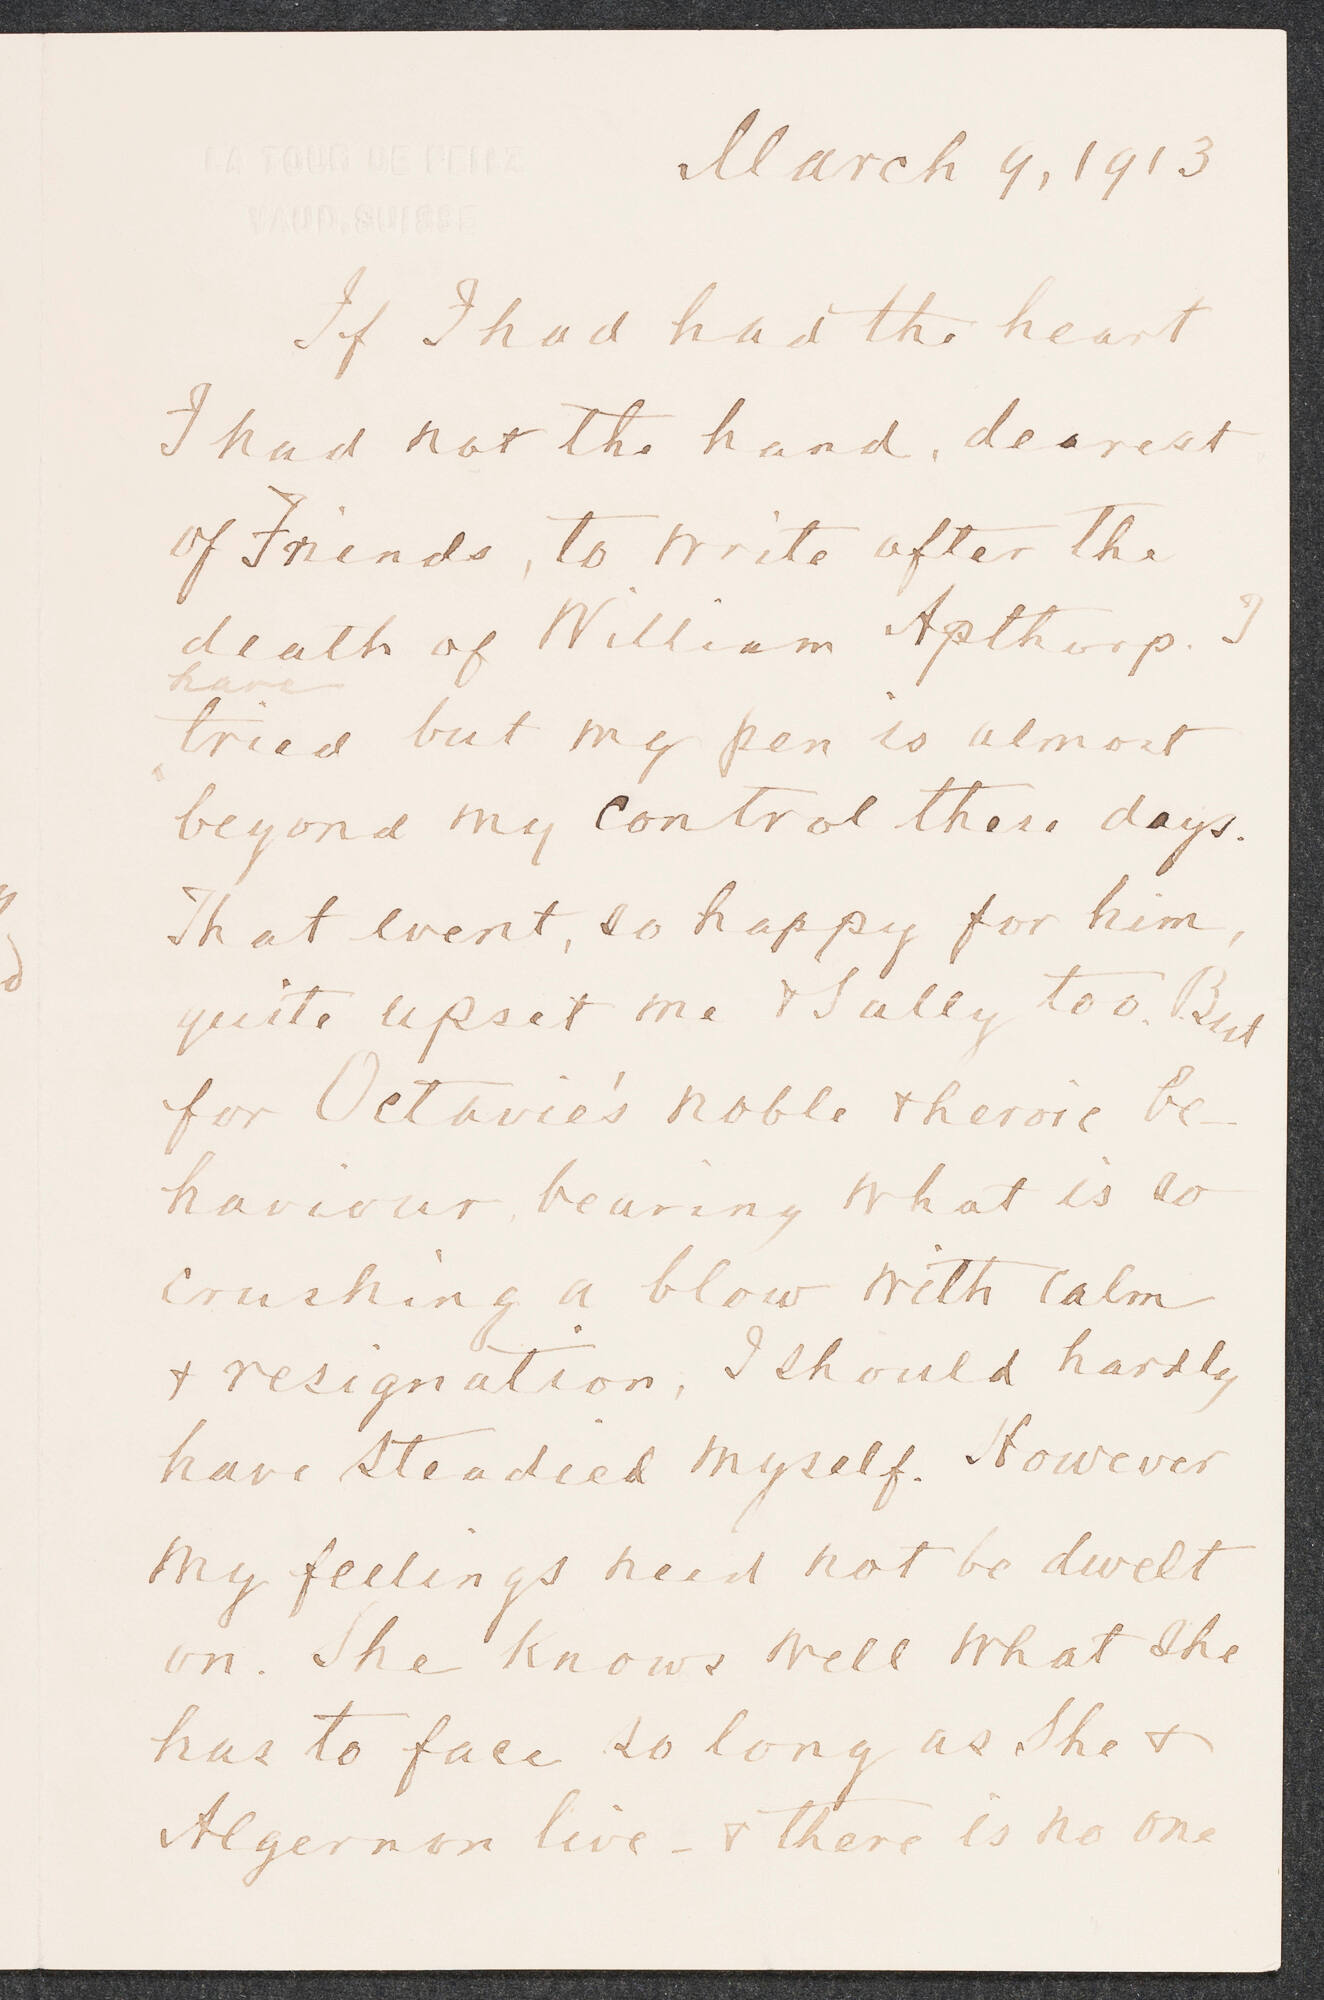 LA TOUR DE PEILZ
VAUD, SUISSE
March 9, 1913
If I had had the heart
I had not the hand, dearest
of Friends, to write after the
death of William Apthorp. I
have
tried but my pen is almost
beyond my control these days.
That event, so happy for him,
quite upset me & Sally too. But
for Octavie's noble & heroic be-
haviour, bearing what is so
crushing a blow with calm
& resignation, I should hardly
have steadied myself. However
my feelings need not be dwelt
on. She knows well what she
has to face so long as she &
Algernon live - & there is no one